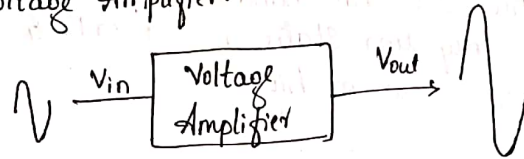 Voltage Amplifier
Vin
Voltage
Amplifier
Vout